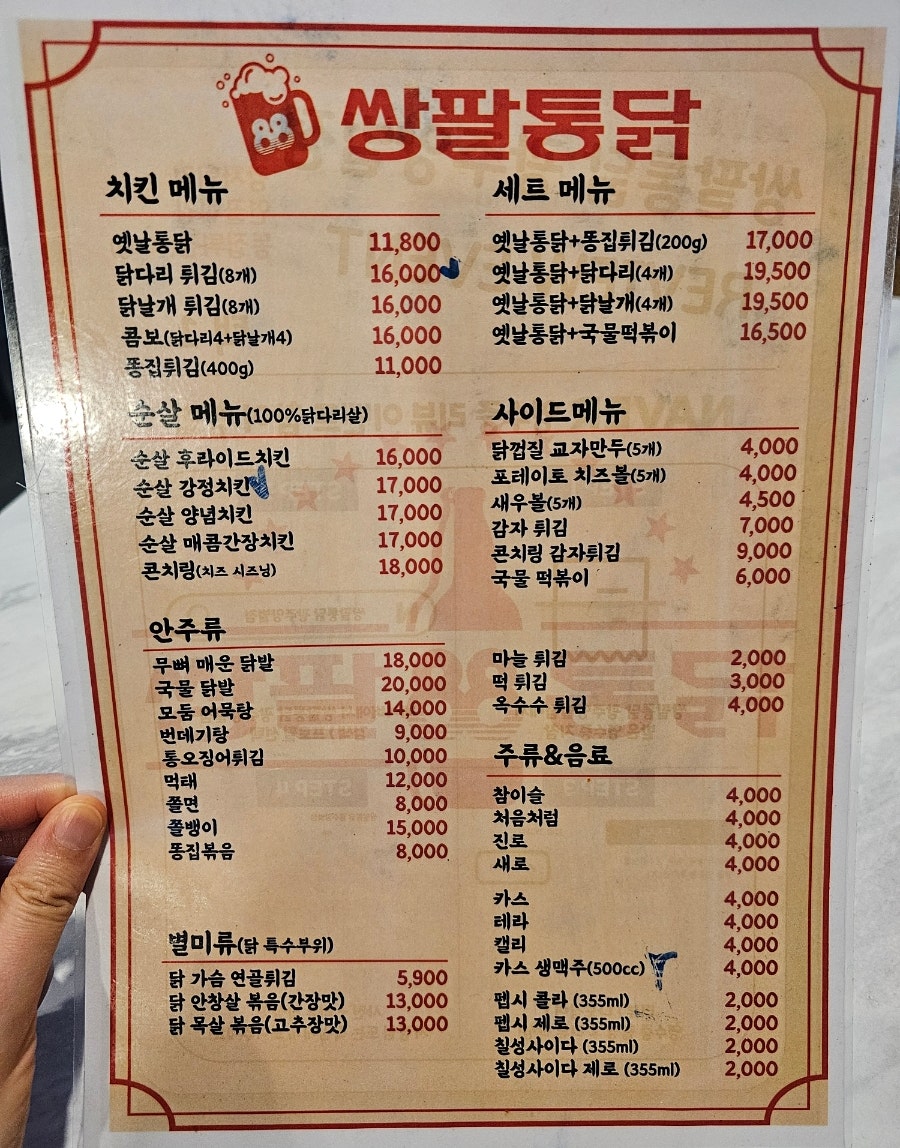 88
쌍팔통닭
치킨 메뉴
옛날통닭 11,800
닭다리 튀김(8개) 16,000
닭날개 튀김(8개) 16,000
콤보(닭다리4+닭날개4) 16,000
똥집튀김(400g) 11,000
순살 메뉴(100%닭다리살)
순살 후라이드치킨 16,000
순살 강정치킨 17,000
순살 양념치킨 17,000
순살 매콤간장치킨 17,000
콘치링(치즈 시즈닝) 18,000
안주류
무뼈 매운 닭발 18,000
국물 닭발 20,000
모둠 어묵탕 14,000
번데기탕 9,000
통오징어튀김 10,000
먹태 12,000
쫄면 8,000
쫄뱅이 15,000
똥집볶음 8,000
별미류(닭 특수부위)
닭 가슴 연골튀김 5,900
닭 안창살 볶음(간장맛) 13,000
닭 목살 볶음(고추장맛) 13,000
세트 메뉴
옛날통닭+똥집튀김(200g) 17,000
옛날통닭+닭다리(4개) 19,500
옛날통닭+닭날개(4개) 19,500
옛날통닭+국물떡볶이 16,500
사이드메뉴
닭껍질 교자만두(5개) 4,000
포테이토 치즈볼(5개) 4,000
새우볼(5개) 4,500
감자 튀김 7,000
콘치링 감자튀김 9,000
국물 떡볶이 6,000
마늘 튀김 2,000
떡 튀김 3,000
옥수수 튀김 4,000
주류&음료
참이슬 4,000
처음처럼 4,000
진로 4,000
새로 4,000
카스 4,000
테라 4,000
캘리 4,000
카스 생맥주(500cc) 4,000
펩시 콜라 (355ml) 2,000
펩시 제로 (355ml) 2,000
칠성사이다 (355ml) 2,000
칠성사이다 제로 (355ml) 2,000